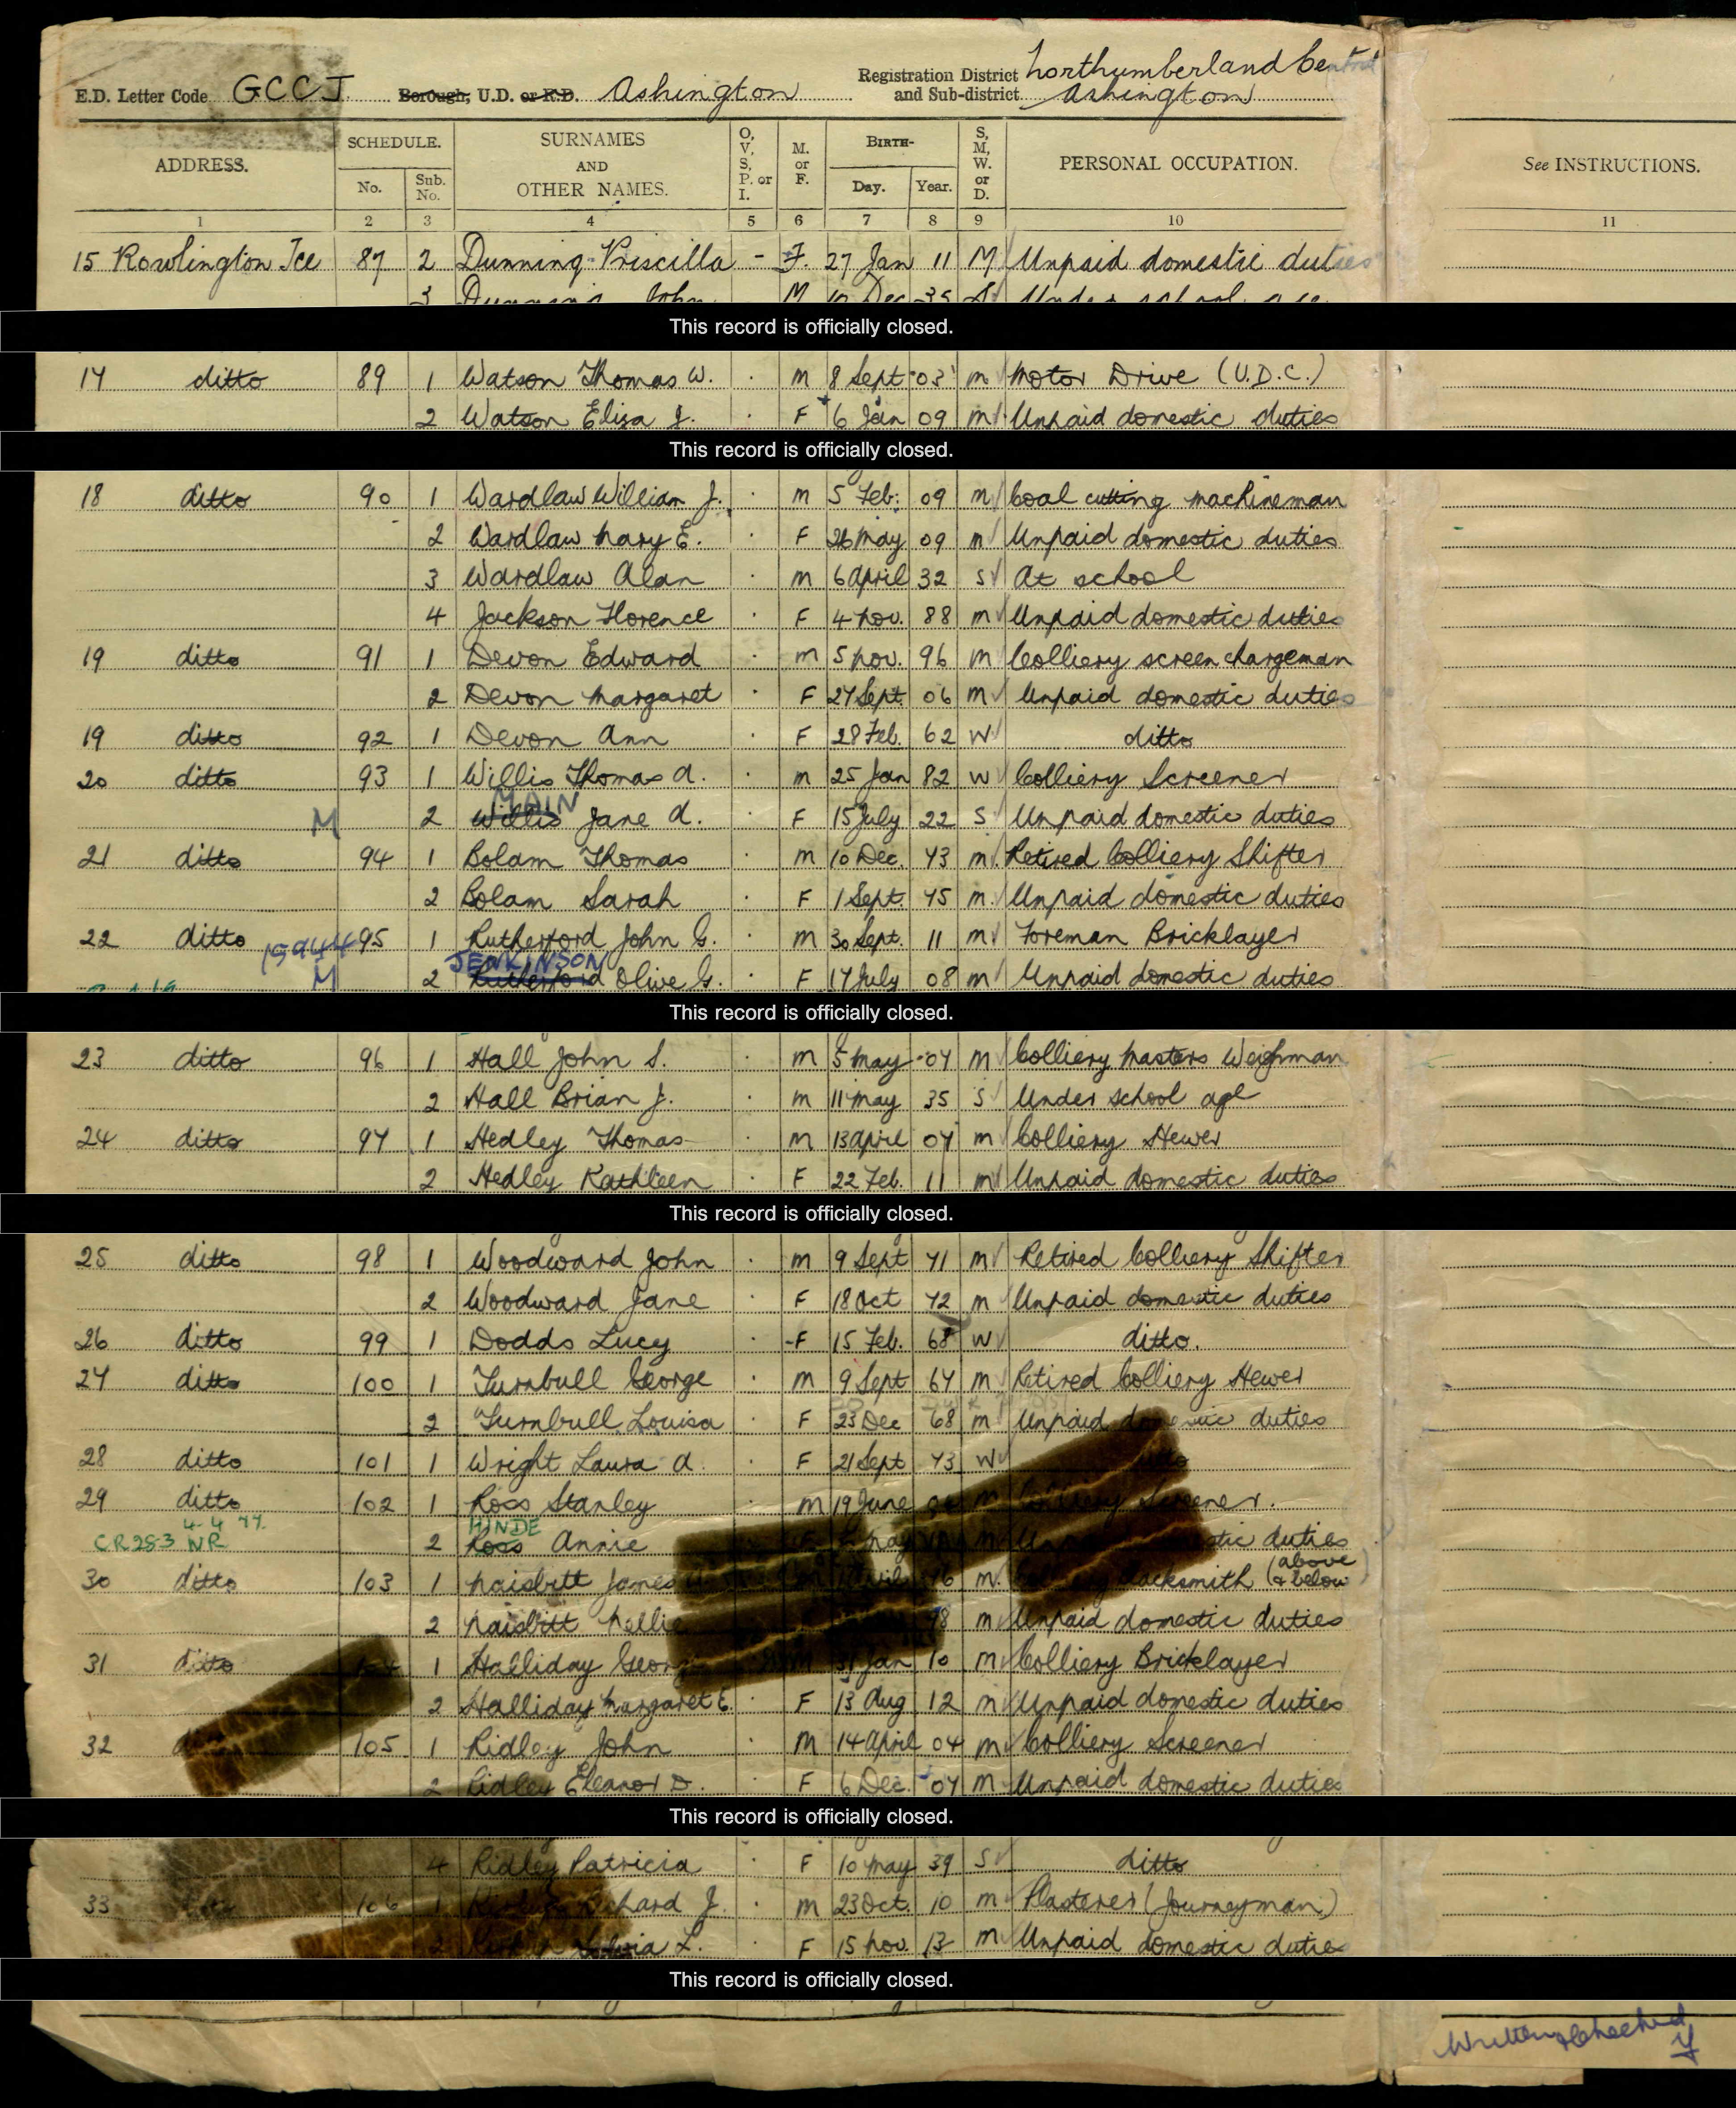 E.D. Letter Code GCCJ Borough, U.D. or R.D. Ashington Registration District and Sub-district Northumberland Central Ashington
ADDRESS. SCHEDULE. No. Sub. No. SURNAMES AND OTHER NAMES. O, V, S, P. or I. M. or F. BIRTH- Day. Year. S, M, W. or D. PERSONAL OCCUPATION. See INSTRUCTIONS.
1 2 3 4 5 6 7 8 9 10 11
15 Rowlington Tce 87 2 Dunning Priscilla - F. 27 Jan 11 M Unpaid domestic duties
3 Dunning John M Dec 35 S Under school age
This record is officially closed.
17 ditto 89 1 Watson Thomas W. M 8 Sept 03 M Motor Drive (U.D.C.)
2 Watson Eliza J. F 6 Jan 09 M Unpaid domestic duties
This record is officially closed.
18 ditto 90 1 Wardlaw William J. M 5 Feb. 09 M Coal cutting machineman
2 Wardlaw Mary E. F 26 May 09 M Unpaid domestic duties
3 Wardlaw Alan M 6 April 32 S At school
4 Jackson Florence F 4 Nov. 88 M Unpaid domestic duties
19 ditto 91 1 Devon Edward M 5 Nov. 96 M Colliery screen chargeman
2 Devon Margaret F 27 Sept. 06 M Unpaid domestic duties
19 ditto 92 1 Devon Ann F 28 Feb. 62 W ditto
20 ditto 93 1 Willis Thomas A. M 25 Jan 82 W Colliery Screener
MAIN
M 2 Willis Jane A. F 15 July 22 S Unpaid domestic duties
21 ditto 94 1 Bolam Thomas M 10 Dec. 73 M Retired Colliery Shifter
2 Bolam Sarah F 1 Sept. 75 M Unpaid domestic duties
22 ditto 95 1 Rutherford John G. M 30 Sept. 11 M Foreman Bricklayer
JENKINSON
M 2 Rutherford Olive G. F 17 July 08 M Unpaid domestic duties
This record is officially closed.
23 ditto 96 1 Hall John S. M 5 May 07 M Colliery Masters Weighman
2 Hall Brian J. M 11 May 35 S Under school age
24 ditto 97 1 Hedley Thomas M 13 April 07 M Colliery Hewer
2 Hedley Kathleen F 22 Feb. 11 M Unpaid domestic duties
This record is officially closed.
25 ditto 98 1 Woodward John M 9 Sept 71 M Retired Colliery Shifter
2 Woodward Jane F 18 Oct 72 M Unpaid domestic duties
26 ditto 99 1 Dodds Lucy F 15 Feb. 68 W ditto.
27 ditto 100 1 Turnbull George M 9 Sept 67 M Retired Colliery Hewer
2 Turnbull Louisa F 23 Dec 68 M Unpaid domestic duties
28 ditto 101 1 Wright Laura A. F 21 Sept 73 W ditto
29 ditto 102 1 Ross Stanley M 19 June M Colliery Screener.
4-4 44. HINDE
CR283 NR 2 Ross Annie F May M Unpaid domestic duties
30 ditto 103 1 Naisbitt James M April 96 M Blacksmith (above & below)
2 Naisbitt Nellie 98 M Unpaid domestic duties
31 ditto 104 1 Halliday George M 31 Jan 10 M Colliery Bricklayer
2 Halliday Margaret E. F 13 Aug 12 M Unpaid domestic duties
32 105 1 Ridley John M 14 April 04 M Colliery Screener
2 Ridley Eleanor D. F 6 Dec. 07 M Unpaid domestic duties
This record is officially closed.
4 Ridley Patricia F 10 May 39 S ditto
33 106 1 Richard J. M 23 Oct. 10 M Plasterer (Journeyman)
2 L. F 15 Nov. 13 M Unpaid domestic duties
This record is officially closed.
Written & Checked